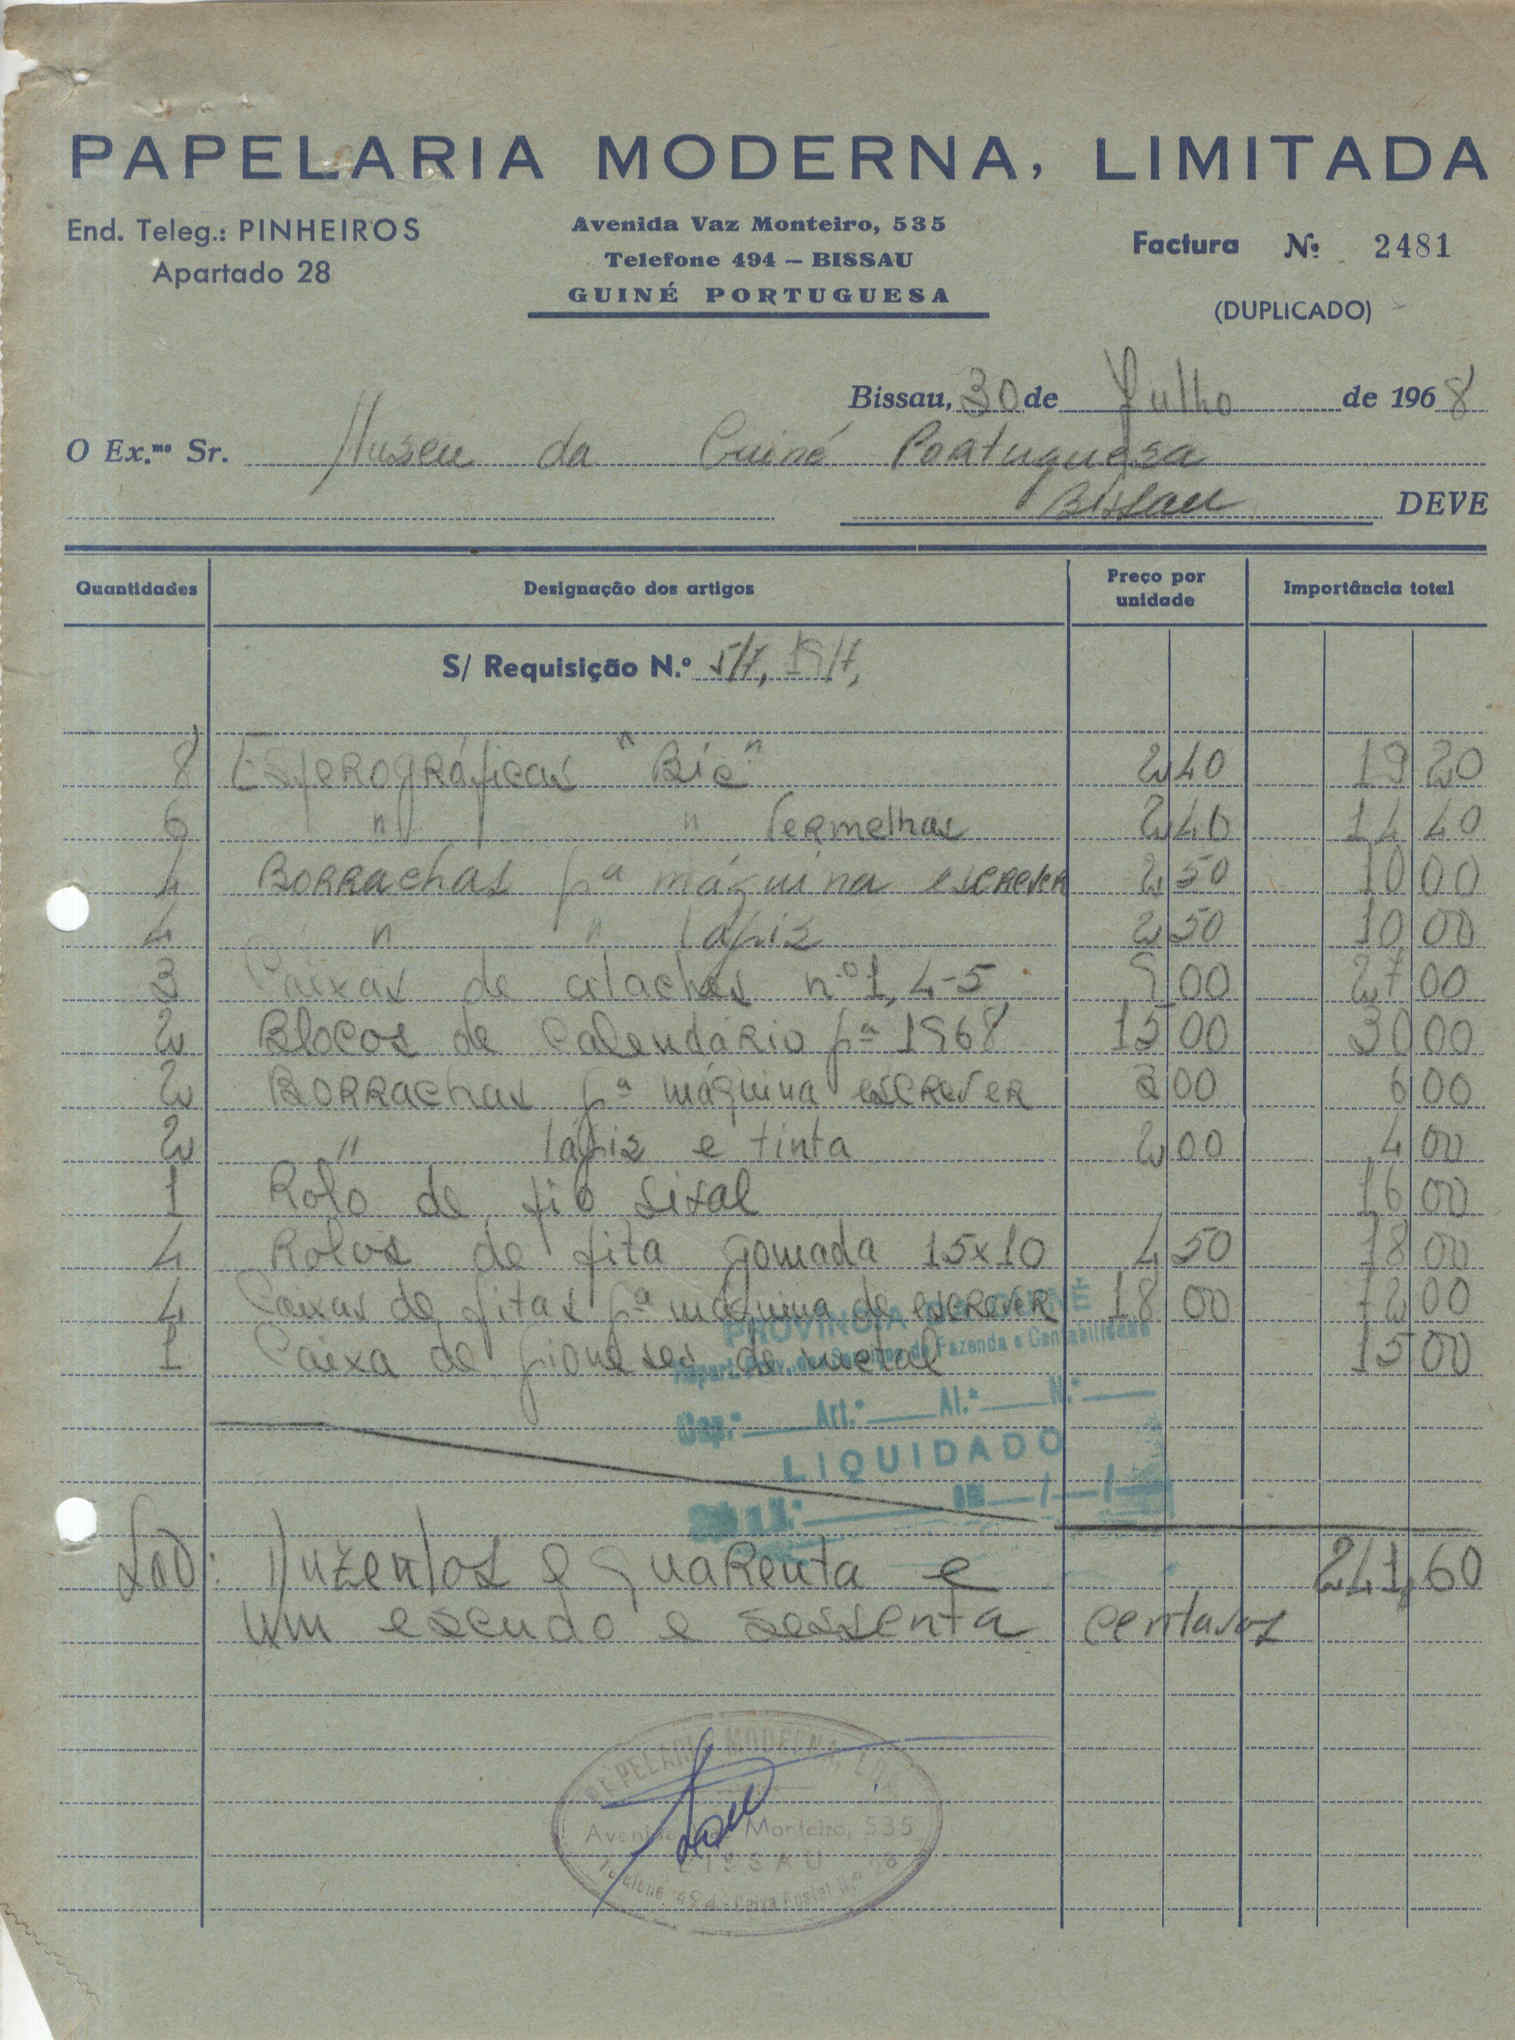 PAPELARIA MODERNA, LIMITADA
End. Teleg.: PINHEIROS
Apartado 28
Avenida Vaz Monteiro, 535
Telefone 494 — BISSAU
GUINÉ PORTUGUESA
Factura Nº 2481
(DUPLICADO)
Bissau, 30 de Julho de 1968
O Ex.mo Sr. Museu da Guiné Portuguesa
Bissau DEVE
Quantidades Designação dos artigos Preço por unidade Importância total
S/ Requisição N.º 5/7, 19/7,
8 Esferográficas "Bic" 2 40 19 20
6 " " Vermelhas 2 40 14 40
4 Borrachas p.ª máquina escrever 2 50 10 00
4 " " lápis 2 50 10 00
3 Caixas de ataches n.º 1, 4-5 9 00 27 00
2 Blocos de Calendário p.ª 1968 15 00 30 00
2 Borrachas p.ª máquina escrever 3 00 6 00
2 " lápis e tinta 2 00 4 00
1 Rolo de fio sixal 16 00
4 Rolos de fita gomada 15x10 4 50 18 00
4 Caixas de fitas p.ª máquina de escrever 18 00 72 00
1 Caixa de pioneses de metal 15 00
PROVÍNCIA DA GUINÉ
Repart. Prov. dos Serviços de Fazenda e Contabilidade
Cap.º Art.º Al.ª N.º
LIQUIDADO
Em / /
São: Duzentos e quarenta e 241,60
um escudo e sessenta centavos
PAPELARIA MODERNA, LDA.
Avenida Vaz Monteiro, 535
BISSAU
Telefone 494 - Caixa Postal n.º 28